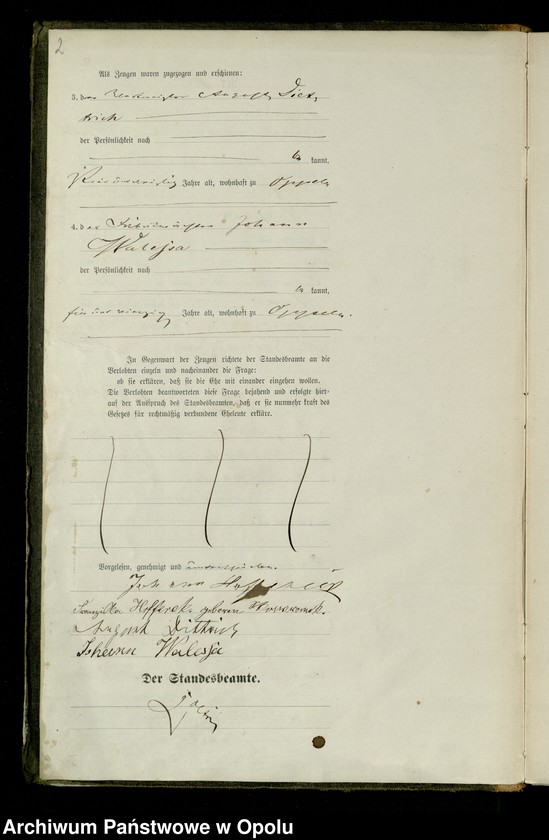 2
Als Zeugen waren zugezogen und erschienen:
3. der August Diet-
rich
der Persönlichkeit nach
be kannt,
Jahre alt, wohnhaft zu Oppeln
4. der Johann
Walessa
der Persönlichkeit nach
be kannt,
Jahre alt, wohnhaft zu Oppeln.
In Gegenwart der Zeugen richtete der Standesbeamte an die
Verlobten einzeln und nacheinander die Frage:
ob sie erklären, daß sie die Ehe mit einander eingehen wollen.
Die Verlobten beantworteten diese Frage bejahend und erfolgte hier-
auf der Ausspruch des Standesbeamten, daß er sie nunmehr kraft des
Gesetzes für rechtmäßig verbundene Eheleute erkläre.
Vorgelesen, genehmigt und unterschrieben.
Johann
geboren
August Dittrich
Johann Walessa
Der Standesbeamte.
Archiwum Państwowe w Opolu